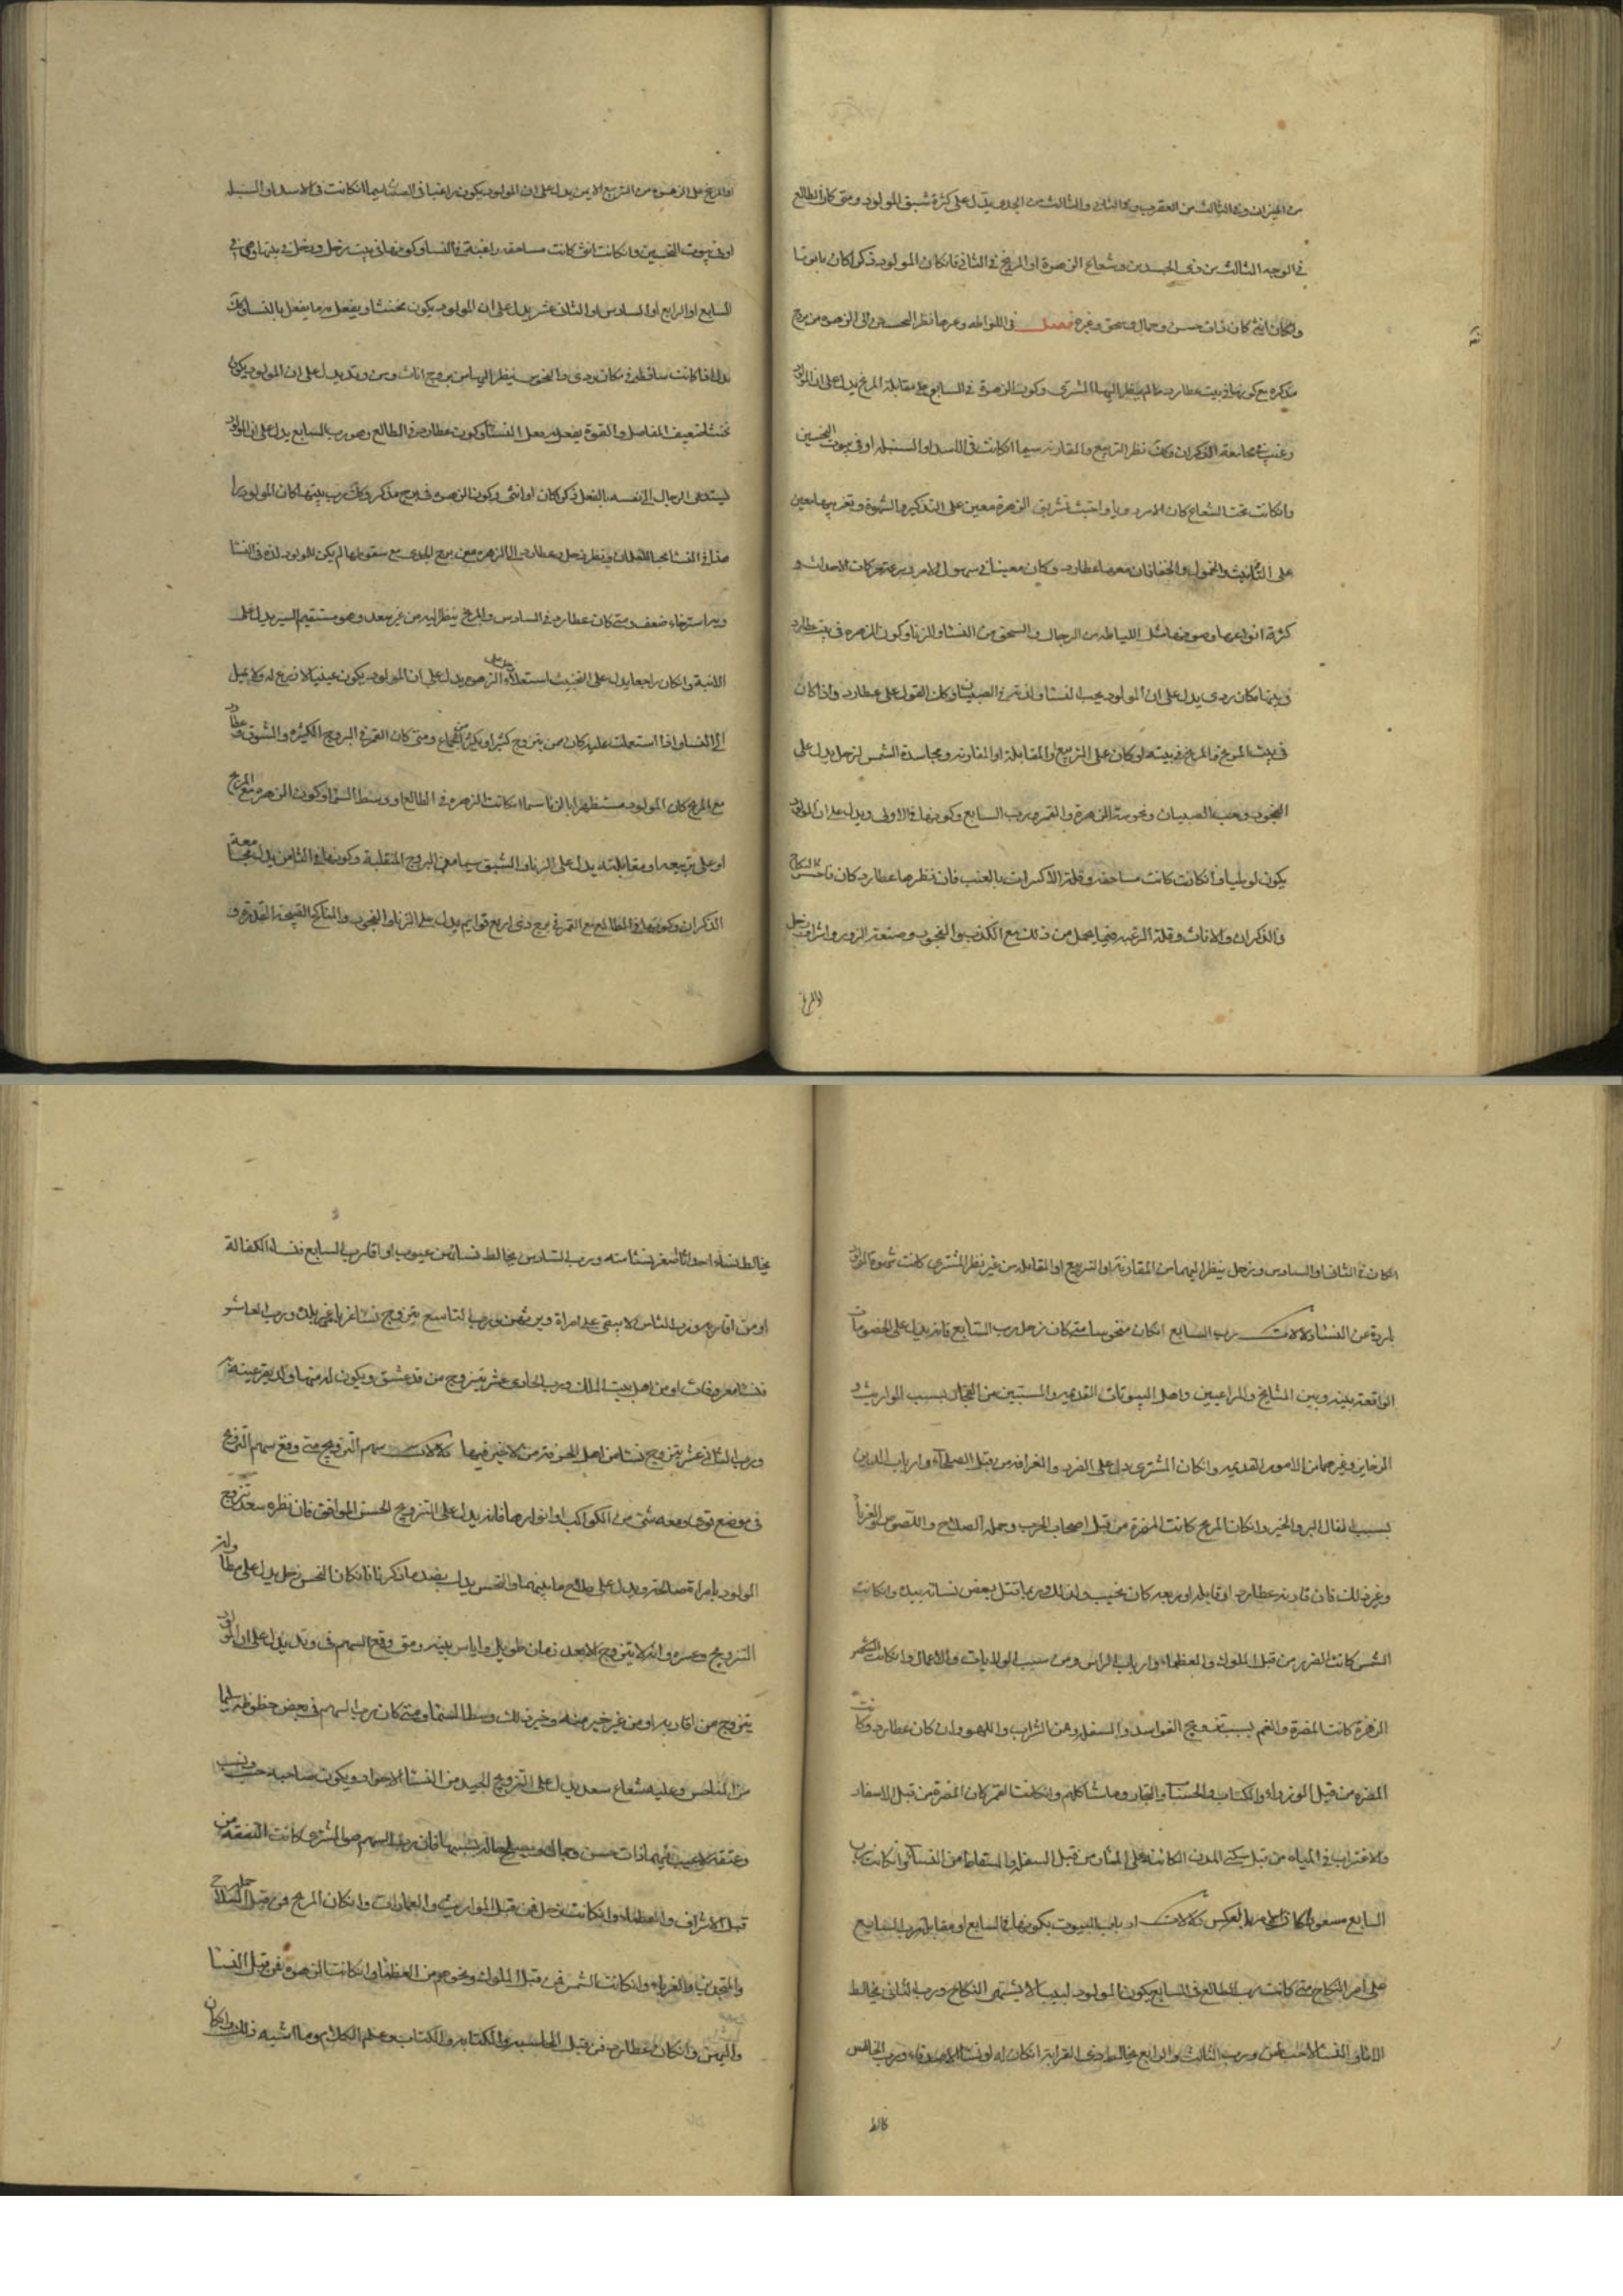 من الميزان وفي الثالث من العقرب وفي الثاني والثالث من الجدي يدل على كثرة شبق المولود ومتى كان الطالع
في الوجه الثالث من ذي الجسدين وشعاع الزهرة او المريخ في الثاني فان كان المولود ذكرا كان مابونا
وان كان انثى كان ذات حسن وجمال وسحق وغيره فصل في اللواطه وغيرها نظر النحسين الى الزهره من بروج
مذكره مع كونها في بيت عطارد ما لم ينظر اليها المشتري وكون الزهرة في السابع في مقابلة المريخ يدل على ان المولود
رغب في مجامعة الذكران وكك نظر التربيع والمقارنه سيما ان كانت في الاسد او السنبله او في بيوت النحسين
وان كانت تحت الشعاع كان للامرد تشريق الزهرة معين على التذكير والشهوة وتغريبها معين
على التأنيث والخمول والخفا فان معها عطارد وكان معينا في سهولة الامر وسرعة حركات الاحداث و
كثرة انواعها وصوفها مثل اللياطه من الرجال والسحق من النسا والزنا وكون الزهره في بيت عطارد
في بيتها مكان ردي يدل على ان المولود يحب النسا والصبيان وكك القول على عطارد واذا كان
في بيت المريخ والمريخ في بيته او كان على التربيع والمقابلة او المقارنه ومجاسدة الشمس لزحل يدل على
الفجور وحب الصبيان ونحوسة الزهرة والقمر ورب السابع وكونها في الاولى ويدل على ان المولود
يكون لوطيا وان كانت كانت مساحقه وقلة الاكسرات بالعنب فان نظرها عطارد كان فاحش النكاح
والذكران والاناث وقلة الرغبه فيما يحل من ذلك مع الكذب والفجور وصنعة الزور واشراف زحل
او المريخ
او المريخ على الزهره من التربيع الايمن يدل على ان المولود يكون راغبا في الصبيا سيما ان كانت في الاسد او السنبله
او في بيوت النحسين وان كانت انثى كانت مساحقه راغبة في النسا وكونها في بيت زحل وزحل في بيتها وهي في
السابع او الرابع او السادس او الثاني عشر يدل على ان المولود يكون مخنثا ويفعل به ما يفعل بالنسا وكك
يدل اذا كانت ساقطه في مكان ردي والنحوس ينظر اليها من بروج اناث ومن وتد يدل على ان المولود يكون
مخنثا ضعيف المفاصل والقوة يفعل به فعل النسا وكون عطارد في الطالع وهو رب السابع يدل على ان المولود
ليستدعى الرجال الى نفسه بالفعل ذكرا كان او انثى وكون الزهره في برج مذكر وكك رب بيتها كان المولود
محبا للغلمان ونظر زحل وعطارد الى الزهره من برج الجدي مع سقوطها لم يكن للمولود لذه في النسا
وبه استرخاء وضعف ومتى كان عطارد في السادس والمريخ ينظر اليه من غير سعد وهو مستقيم السير يدل على
الابنه وان كان راجعا يدل على التخنيث استعلاء زحل على الزهره يدل على ان المولود يكون عنينا لا زرع له ولا يميل
الى النسا واذا استعلت عليه كان ممن يتزوج كثيرا ويكثر جماعه ومتى كان القمر في البروج الكثيره والشوق عطارد
مع المريخ كان المولود مستظهرا بالزنا سيما ان كانت الزهره في الطالع او وسط السما وكون الزهره مع المريخ
او على تربيعه او مقابلته يدل على الزنا والشبق سيما في البروج المنقلبة وكونها في الثامن يدل مجامعة
الذكران وكونها في الطالع مع القمر في برج ذي اربع قوايم يدل على الزنا والفجور والمناكح القبيحة القذره و
ان كان في الثاني او السادس وزحل ينظر اليهما من المقارنة او التربيع او المقابله من غير نظر المشتري كانت شهوة المولود
باردة عن النسا دلالات رب السابع ان كان منحوسا متى كان زحل رب السابع فانه يدل على الخصومات
الواقعة بينه وبين المشايخ والمزاعيين واهل البيوتات القديمه والمسنين من العجائز بسبب المواريث و
الرخاين وغيرها من الامور القديمه وان كان المشتري دل على الضرر والغرامه من قبل الصلحاء وارباب الدين
بسبب افعال البر والخير وان كان المريخ كانت المضرة من قبل اصحاب الحرب وحملة السلاح واللصوص والغرباء
وغير ذلك فان قارنه عطارد او قابله او ربعه كان وربما قتل بعض نسائه بيده وان كانت
الشمس كانت الضرر من قبل الملوك والعظماء وارباب الراس ومن سبب الولايات والاعمال وان كانت
الزهرة كانت المضرة والغم بسبب تزويج الفواسد والسفله ومن الشراب واللهو وان كان عطارد وكانت
المضره من قبل الوزراء والكتاب والحساب والتجار وما شاكلهم وان كانت القمر كان المضره من قبل الاسفار
والاغتراب في المياه من قبل سكنى المدن الكائنة على الماء ومن قبل السفله والسقاط من النساء وان كانت رب
السابع مسعودا كان الامر بالعكس دلالات ارباب البيوت بكونها في السابع او مقابله رب السابع
على امر النكاح متى كانت رب الطالع في السابع يكون المولود لبيبا لا يشتهي النكاح ورب الثاني يخالط
الاماء والنسا الاجنبيات ورب الثالث والرابع يخالط ذي القرابة ان كان له او نسا الاصدقاء ورب الخامس
يخالط
يخالط نساء احداثا اصغر سنا منه ورب السادس يخالط نسا فيهن عيوب او اقارب السابع فنساء الكفالة
او من اقاربه ورب الثامن لا يبقى عليه امراة ويرثهن ورب التاسع يتزوج نسا غربا في غير بلده ورب العاشر
فنسا معروفات او من اهل بيت الملك ورب الحادي عشر يتزوج من قد عشق ويكون له منها ولد يقر عينه به
ورب الثاني عشر يتزوج نسا من اهل الحرفة من لا خير فيها دلالات سهم التزويج متى وقع سهم التزويج
في موضع قوي ومعه شي من الكواكب او انوارها فانه يدل على التزويج الحسن الموافق فان نظره سعد تزوج
المولود بامراة صالحة ويدل على صلاح ما بينهما والنحس يدل بضد ما ذكرنا فان كان النحس زحل يدل على مطاولة
التزويج وعسره وانه لا يتزوج الا بعد زمان طويل واياس بينه ومتى وقع السهم في وتد يدل على ان المولود
يتزوج من اقاربه او من غير خير منه وخير ذلك وسط السما ومتى كان رب السهم في بعض حظوظه سليما
من المناحس وعليه شعاع سعد يدل على التزويج الجيد من النسا الاحرار ويكون صاحبه حسب ونسب
وعتقه لا عيب فيها ذات حسن وجمال ويصلح حاله بسببها فان رب السهم هو المشتري كانت المنفعة من
قبل الاشراف والعظماء وان كانت زحل فمن قبل المواريث والعمارات وان كان المريخ فمن قبل حملة السلاح
والمتجندين والغرباء وان كانت الشمس فمن قبل الملوك ونحوهم من العظما وان كانت الزهره فمن قبل النسا
والهمن وان كان عطارد فمن قبل المحاسبه والكتابه والكتاب وعلم الكلام وما اشبه ذلك وان كان